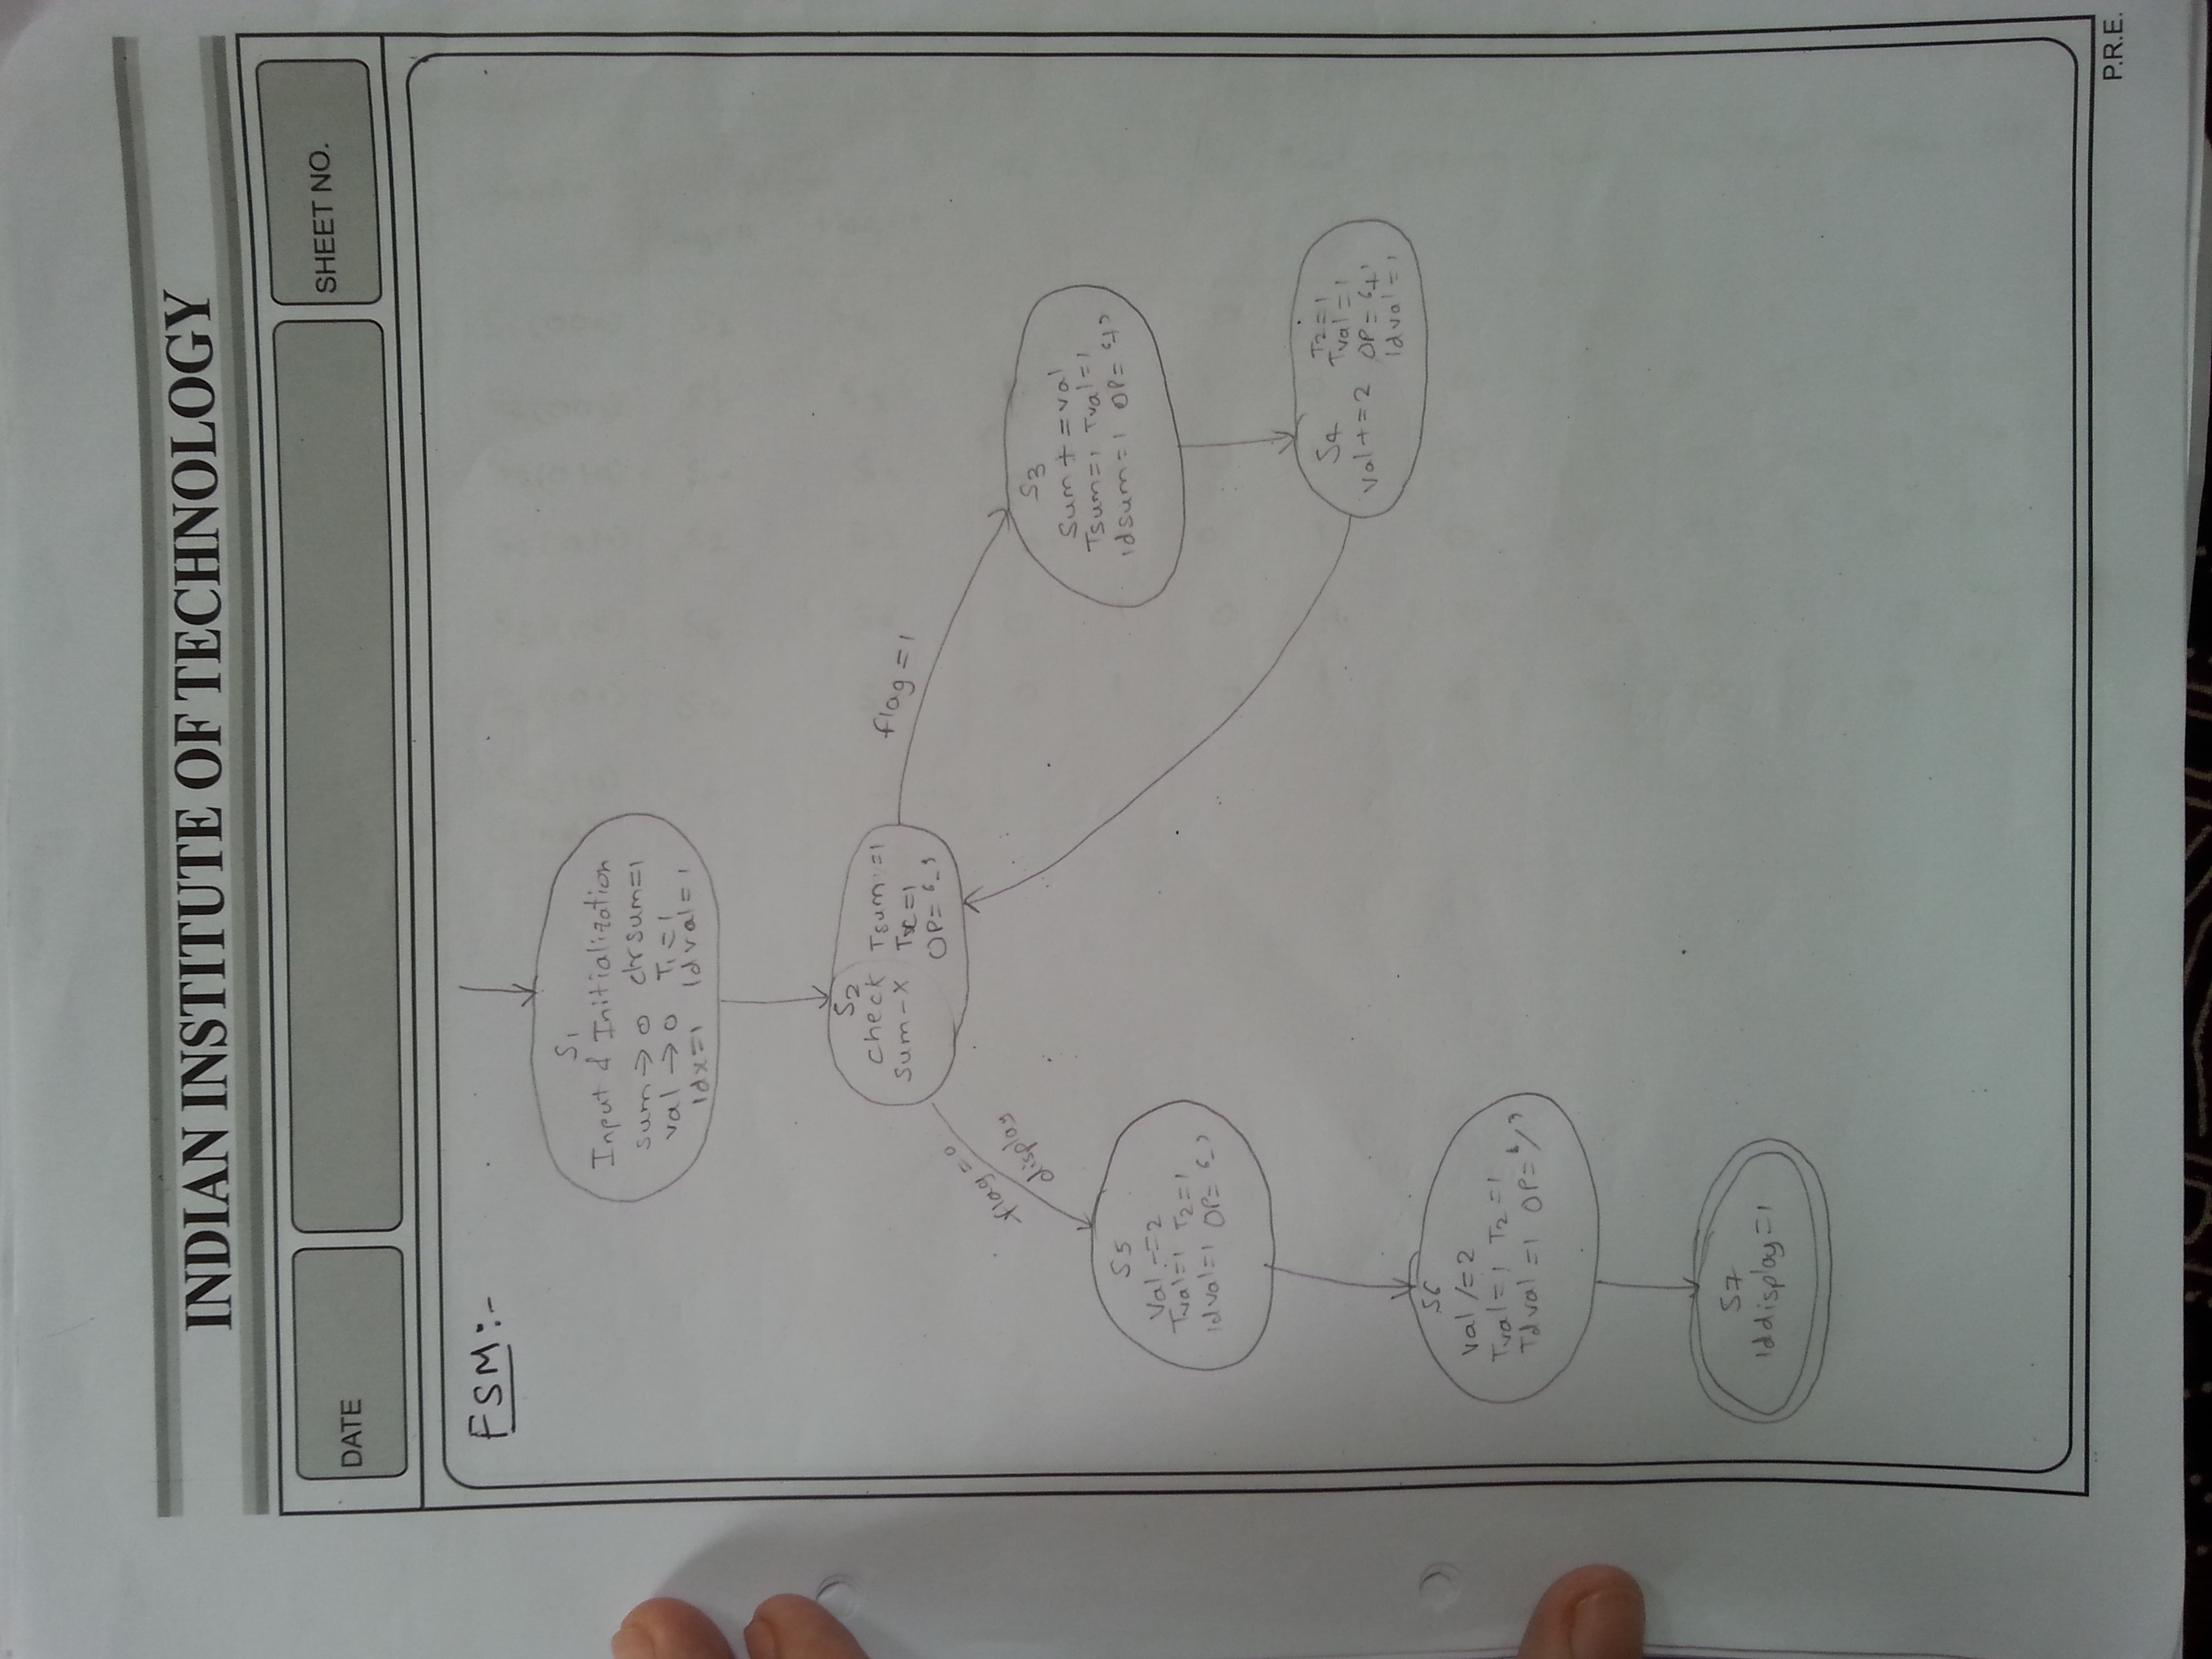 INDIAN INSTITUTE OF TECHNOLOGY
DATE
SHEET NO.
FSM:-
S1
Input & Initialization
sum → 0 clrsum=1
val → 0 T1=1
ldx=1 ldval=1
S2
check Tsum=1
sum-x Tx=1
OP='-'
flag=1
flag=0
display
S3
Sum+=val
Tsum=1 Tval=1
ldsum=1 OP='+'
S5
Val-=2
Tval=1 T2=1
ldval=1 OP='-'
S4
val+=2
T2=1
Tval=1
OP='+'
ldval=1
S6
val/=2
Tval=1 T2=1
Tdval=1 OP='/'
S7
lddisplay=1
P.R.E.